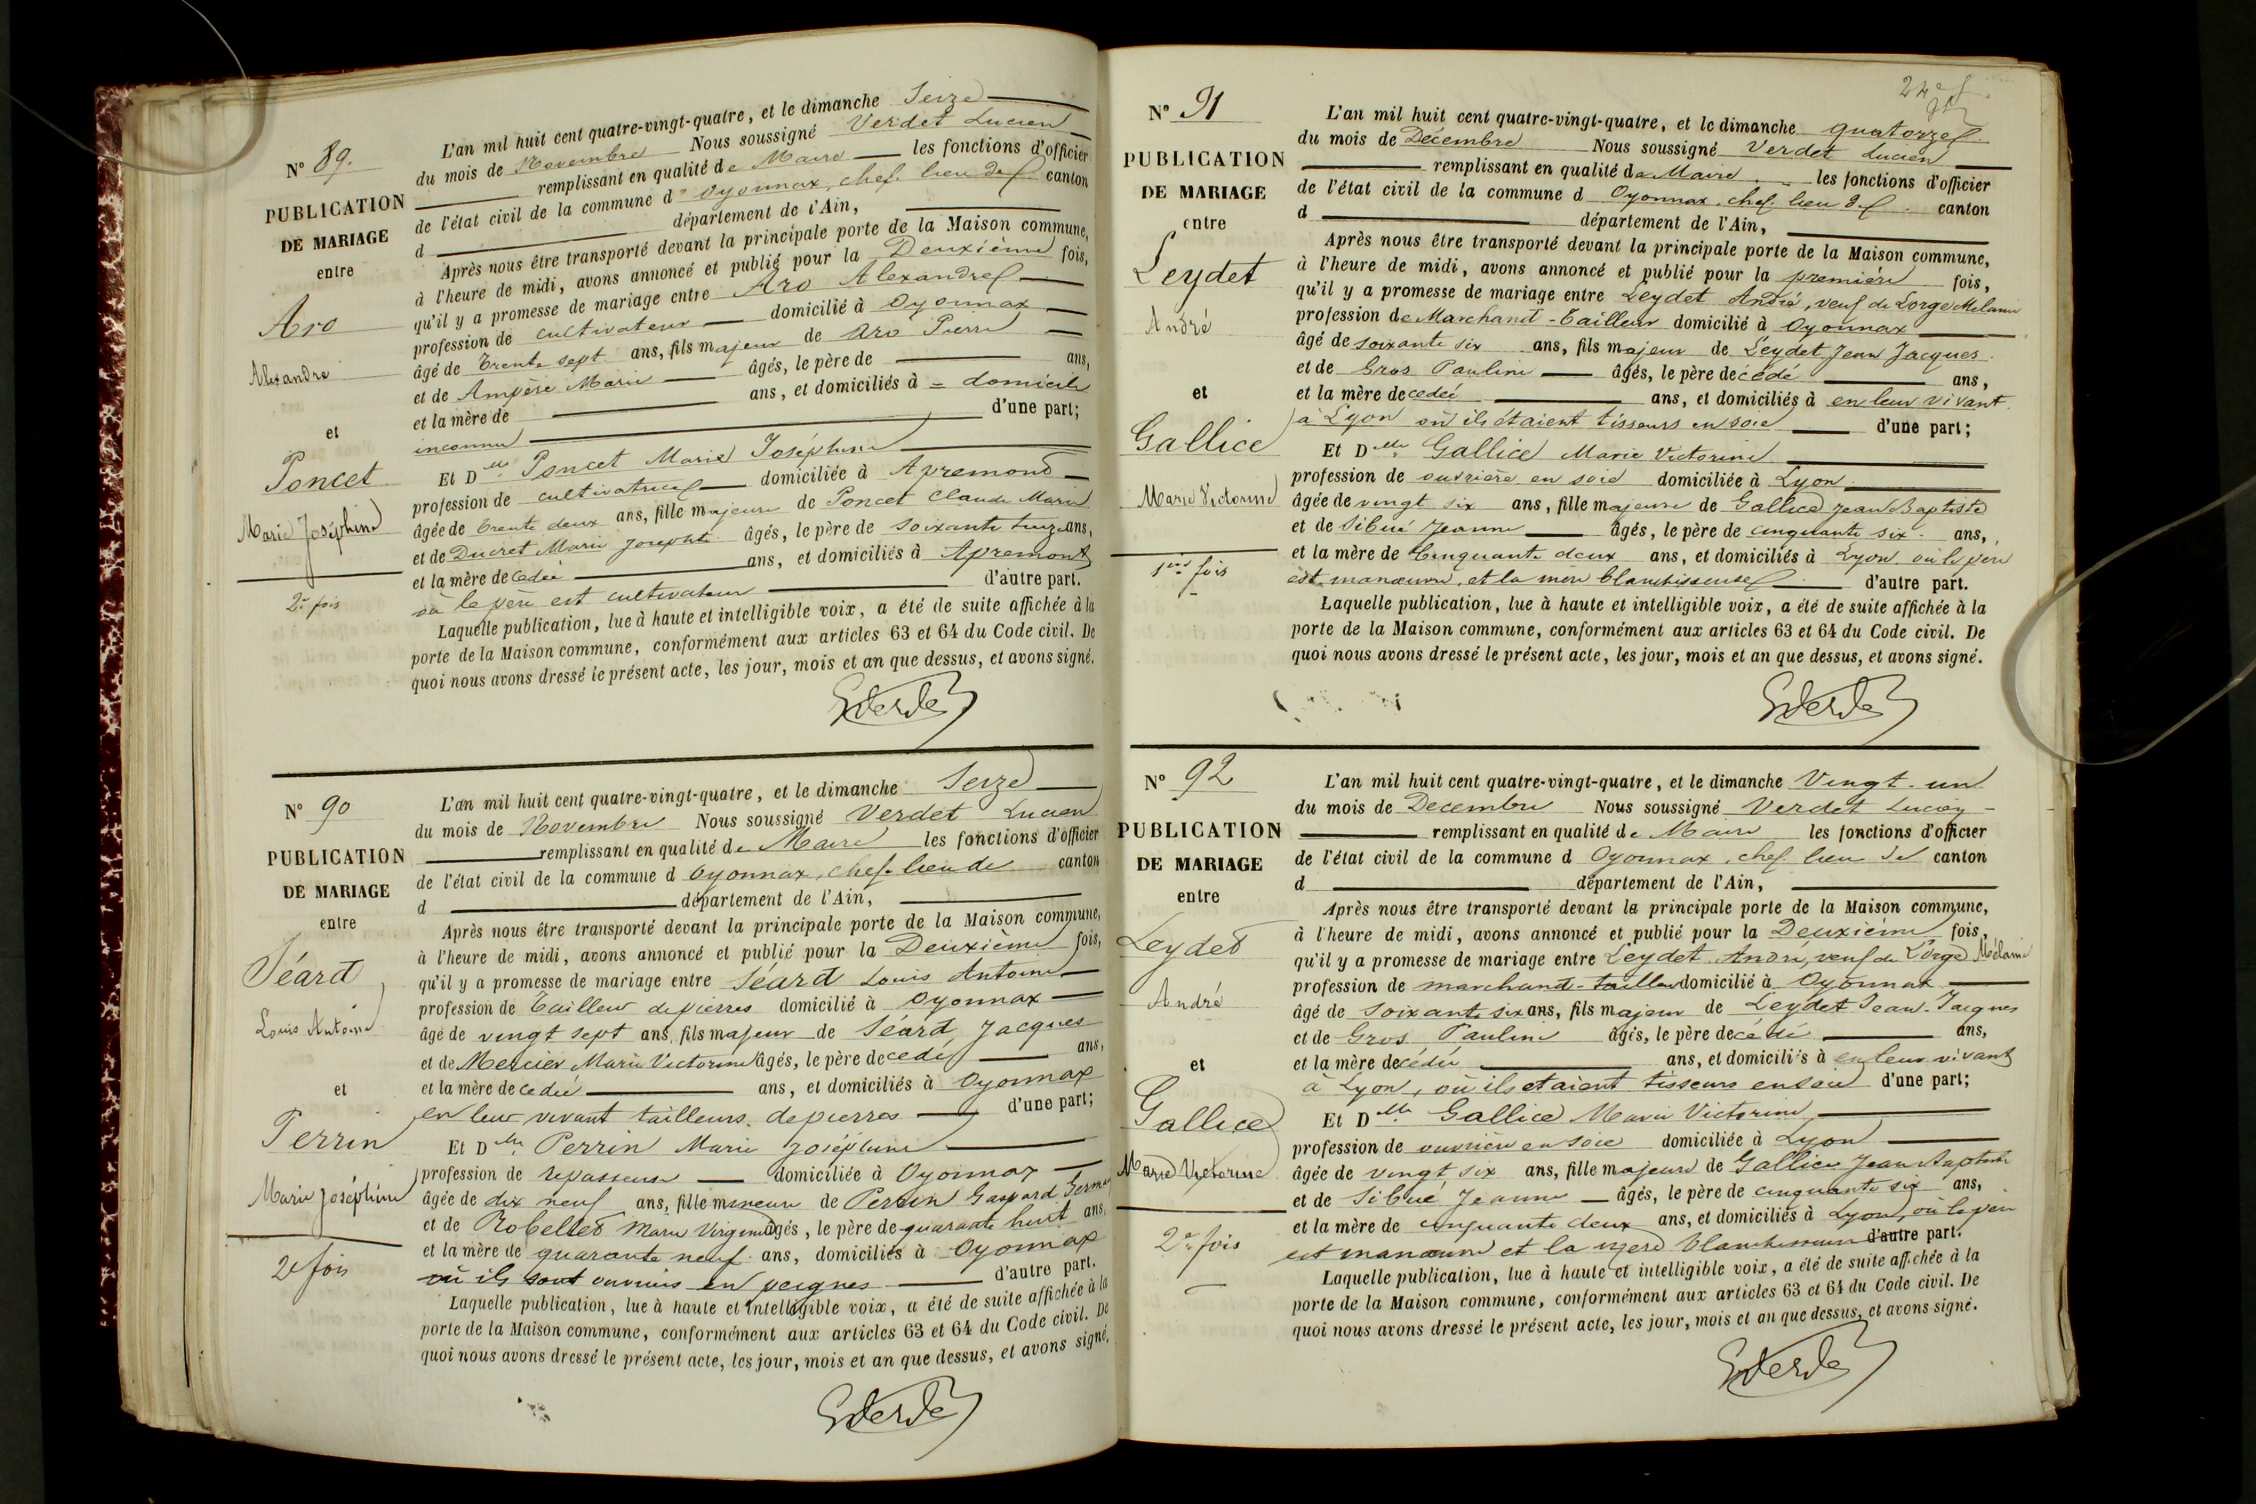 N° 89.
PUBLICATION
DE MARIAGE
entre
Aro
Alexandre
et
Poncet
Marie Joséphine
2e fois
L'an mil huit cent quatre-vingt-quatre, et le dimanche Seize
du mois de Novembre Nous soussigné Verdet Lucien
remplissant en qualité de Maire les fonctions d'officier
de l'état civil de la commune d'Oyonnax, chef-lieu de canton
d département de l'Ain,
Après nous être transporté devant la principale porte de la Maison commune,
à l'heure de midi, avons annoncé et publié pour la Deuxième fois,
qu'il y a promesse de mariage entre Aro Alexandre
profession de cultivateur domicilié à Oyonnax
âgé de trente sept ans, fils majeur de Aro Pierre
et de Ampère Marie âgés, le père de ans,
et la mère de ans, et domiciliés à = domicile
inconnu d'une part;
Et Dlle Poncet Marie Joséphine
profession de cultivatrice domiciliée à Apremont
âgée de trente deux ans, fille majeure de Poncet Claude Marie
et de Ducret Marie Josephte âgés, le père de soixante ans,
et la mère décédée ans, et domiciliés à Apremont
où le père est cultivateur d'autre part.
Laquelle publication, lue à haute et intelligible voix, a été de suite affichée à la
porte de la Maison commune, conformément aux articles 63 et 64 du Code civil. De
quoi nous avons dressé le présent acte, les jour, mois et an que dessus, et avons signé.
LVerdet
N° 90
PUBLICATION
DE MARIAGE
entre
Séard
Louis Antoine
et
Perrin
Marie Joséphine
2e fois
L'an mil huit cent quatre-vingt-quatre, et le dimanche Seize
du mois de Novembre Nous soussigné Verdet Lucien
remplissant en qualité de Maire les fonctions d'officier
de l'état civil de la commune d Oyonnax, chef-lieu de canton
d département de l'Ain,
Après nous être transporté devant la principale porte de la Maison commune,
à l'heure de midi, avons annoncé et publié pour la Deuxième fois,
qu'il y a promesse de mariage entre Séard Louis Antoine
profession de Tailleur de pierres domicilié à Oyonnax
âgé de vingt sept ans, fils majeur de Séard Jacques
et de Mercier Marie Victorine âgés, le père décédé ans,
et la mère décédée ans, et domiciliés à Oyonnax
en leur vivant tailleurs de pierres d'une part;
Et Dlle Perrin Marie Joséphine
profession de repasseuse domiciliée à Oyonnax
âgée de dix neuf ans, fille mineure de Perrin Gaspard Germain
et de Robellet Marie Virginie âgés, le père de quarante huit ans,
et la mère de quarante neuf ans, domiciliés à Oyonnax
où ils sont ouvriers en peignes d'autre part.
Laquelle publication, lue à haute et intelligible voix, a été de suite affichée à la
porte de la Maison commune, conformément aux articles 63 et 64 du Code civil. De
quoi nous avons dressé le présent acte, les jour, mois et an que dessus, et avons signé.
LVerdet
24e f.
N° 91
PUBLICATION
DE MARIAGE
entre
Leydet
André
et
Gallice
Marie Victorine
1ère fois
L'an mil huit cent quatre-vingt-quatre, et le dimanche quatorze
du mois de Décembre Nous soussigné Verdet Lucien
remplissant en qualité de Maire les fonctions d'officier
de l'état civil de la commune d Oyonnax, chef-lieu de canton
d département de l'Ain,
Après nous être transporté devant la principale porte de la Maison commune,
à l'heure de midi, avons annoncé et publié pour la première fois,
qu'il y a promesse de mariage entre Leydet André, veuf de Lorge Mélanie
profession de Marchand-Tailleur domicilié à Oyonnax
âgé de soixante six ans, fils majeur de Leydet Jean Jacques
et de Gros Pauline âgés, le père décédé ans,
et la mère décédée ans, et domiciliés à en leur vivant
à Lyon où ils étaient tisseurs en soie d'une part;
Et Dlle Gallice Marie Victorine
profession de ouvrière en soie domiciliée à Lyon
âgée de vingt six ans, fille majeure de Gallice Jean Baptiste
et de Sibué Jeanne âgés, le père de cinquante six ans,
et la mère de Cinquante deux ans, et domiciliés à Lyon où le père
est manœuvre, et la mère blanchisseuse d'autre part.
Laquelle publication, lue à haute et intelligible voix, a été de suite affichée à la
porte de la Maison commune, conformément aux articles 63 et 64 du Code civil. De
quoi nous avons dressé le présent acte, les jour, mois et an que dessus, et avons signé.
LVerdet
N° 92
PUBLICATION
DE MARIAGE
entre
Leydet
André
et
Gallice
Marie Victorine
2e fois
L'an mil huit cent quatre-vingt-quatre, et le dimanche Vingt-un
du mois de Decembre Nous soussigné Verdet Lucien
remplissant en qualité de Maire les fonctions d'officier
de l'état civil de la commune d Oyonnax, chef-lieu de canton
d département de l'Ain,
Après nous être transporté devant la principale porte de la Maison commune,
à l'heure de midi, avons annoncé et publié pour la Deuxième fois,
qu'il y a promesse de mariage entre Leydet André, veuf de Lorge Mélanie
profession de marchand-tailleur domicilié à Oyonnax
âgé de soixante six ans, fils majeur de Leydet Jean-Jacques
et de Gros Pauline âgés, le père décédé ans,
et la mère décédée ans, et domiciliés à en leur vivant
à Lyon, où ils étaient tisseurs en soie d'une part;
Et Dlle Gallice Marie Victorine
profession de ouvrière en soie domiciliée à Lyon
âgée de vingt six ans, fille majeure de Gallice Jean Baptiste
et de Sibué Jeanne âgés, le père de cinquante six ans,
et la mère de cinquante deux ans, et domiciliés à Lyon, où le père
est manœuvre et la mère blanchisseuse d'autre part.
Laquelle publication, lue à haute et intelligible voix, a été de suite affichée à la
porte de la Maison commune, conformément aux articles 63 et 64 du Code civil. De
quoi nous avons dressé le présent acte, les jour, mois et an que dessus, et avons signé.
LVerdet